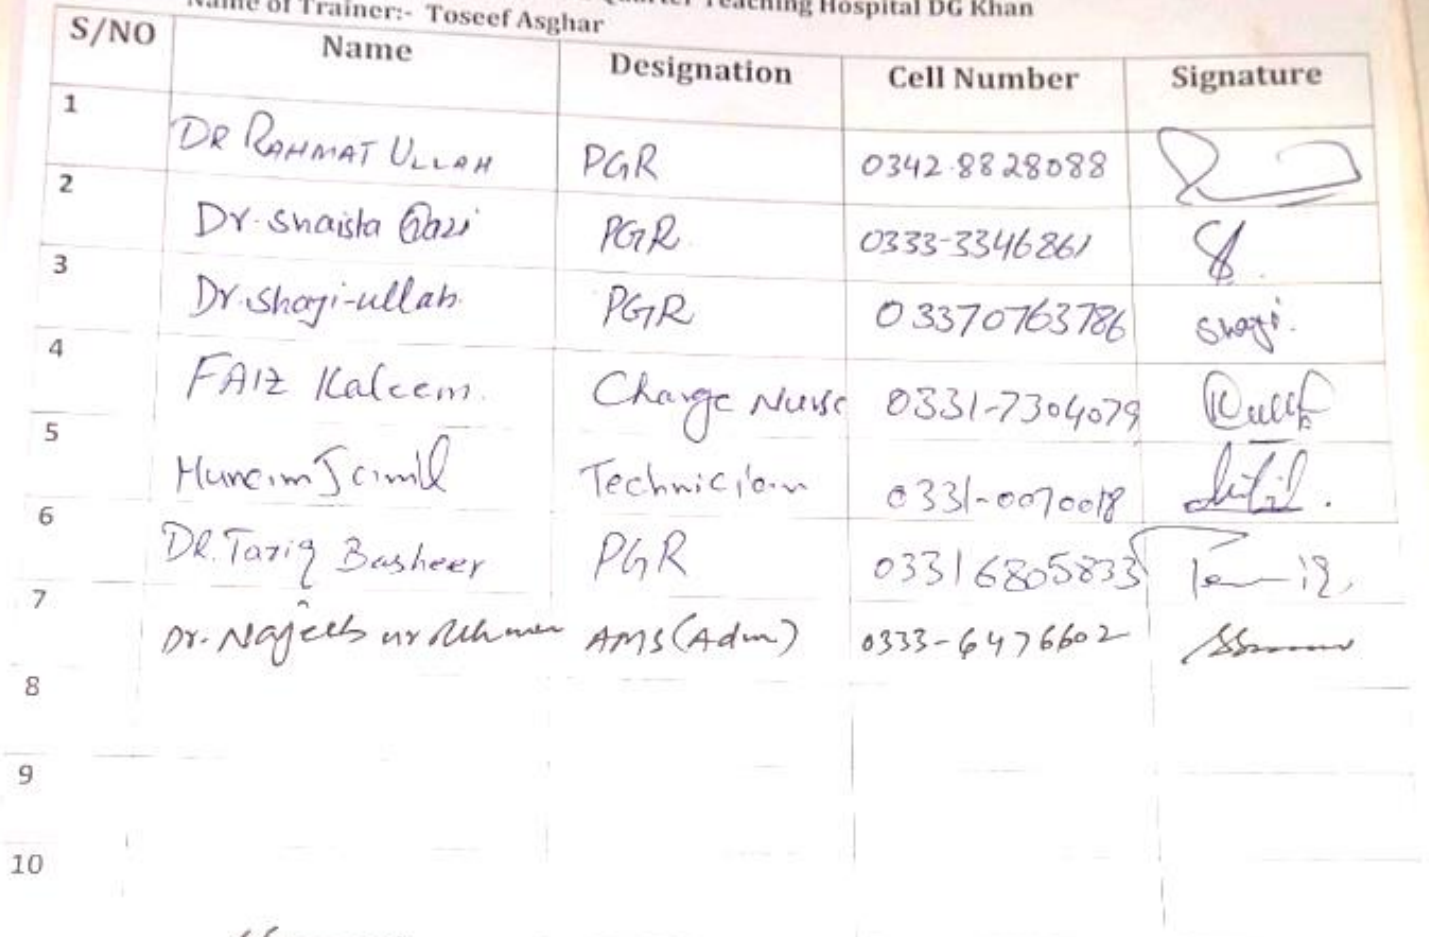 Teaching Hospital DG Khan
Name of Trainer:- Toseef Asghar
S/NO Name Designation Cell Number Signature
1 DR RAHMAT ULLAH PGR 0342-8828088
2 Dr. Shaista Qazi PGR 0333-3346861
3 Dr. Shazi-ullah PGR 03370763786 Shazi.
4 FAIZ Kaleem. Charge Nurse 0331-7304079
5 Technician 0331-0070018
6 DR. Tariq Basheer PGR 03316805833 Tariq
7 Dr. Najeeb ur Rehman AMS (Adm) 0333-6476602
8
9
10